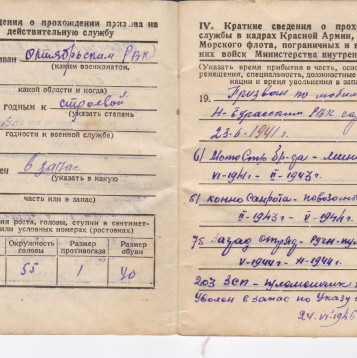 дения о прохождении призыва на
действительную службу
зван Октябрьским РВК
(каким военкоматом,
какой области и когда)
годным к строевой
(указать степень
годности к военной службе)
ен в запас
(указать в какую
часть или в запас)
ния роста, головы, ступни в сантимет-
или условных номерах (ростовках)
Окружность головы Размер противогаза Размер обуви
55 1 40
IV. Краткие сведения о прохо
службы в кадрах Красной Армии,
Морского флота, пограничных и в
них войск Министерства внутрен
(Указать время прибытия в часть, основ
ремещения, специальность, должностные
и время увольнения в запа
19. Призван по мобили
РВК
23-6-1941 г.
6) МотоСтр бр-да - мин
VI-1941г - II-1943г.
б) конно повозочн
II-1943г - V-1944г.
75 Заград отряд - Руч-пул
V-1944г - XI-1944г.
203 ЗСП - пулеметчик
Уволен в запас по Указу
24-VI-1946